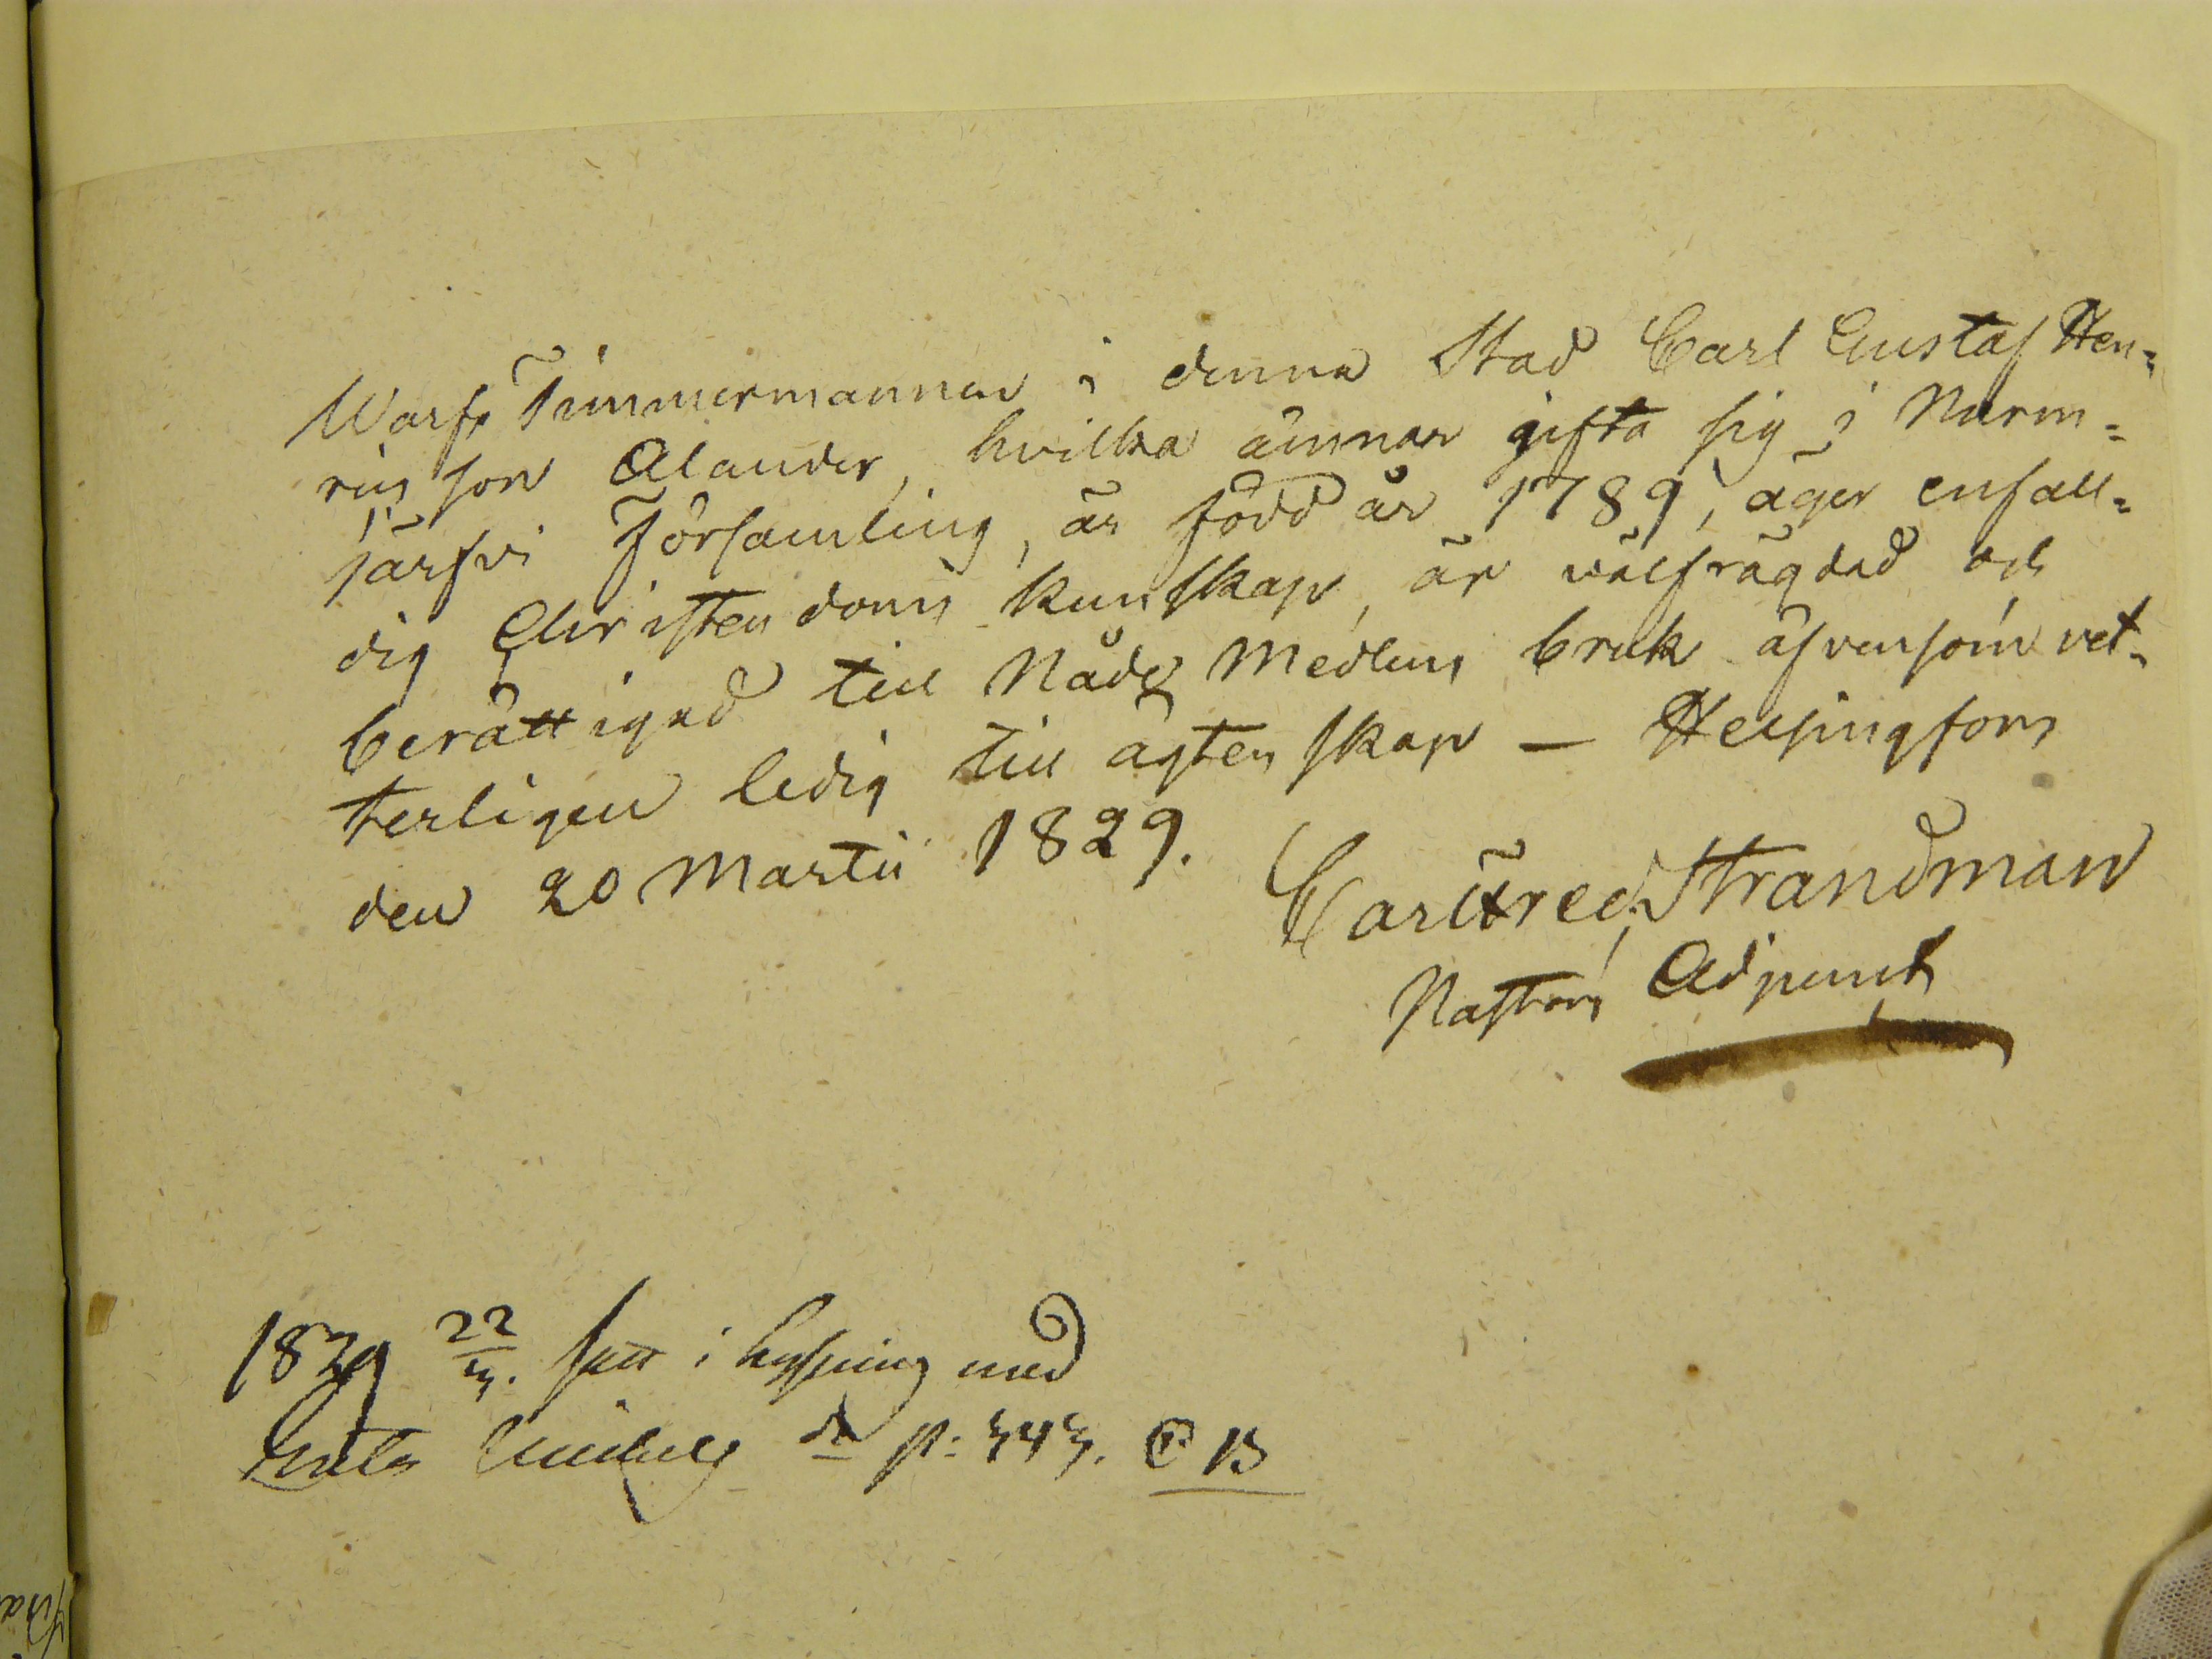 Warfs Timmermannen i denna Stad Carl Gustaf Hen-
rics son Alander, hvilka ämnar gifta sig i Nurm-
järfvi Församling, är född år 1789, äger enfall-
dig Christendoms kunskap, är wälfrägdad och
berättigad till Nåde Medlens bruk äfvensom vet-
terligen ledig till ägtenskap — Helsingfors
den 20 Martii 1829.
Carl Fred. Strandman
Pastors Adjunct
1829 22/3. satt i lysning med
p: 343. C B